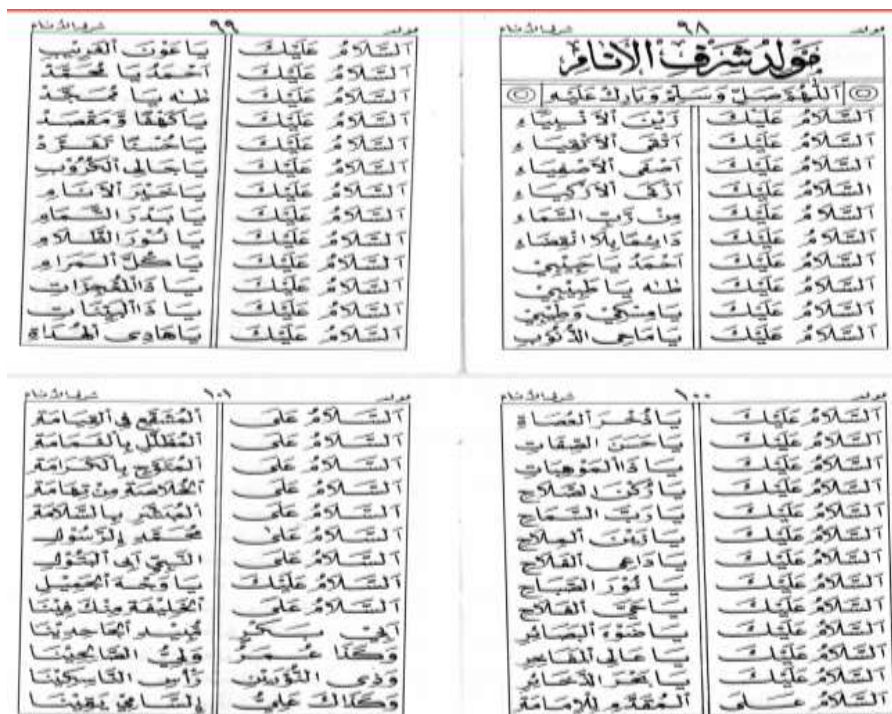 مولد ٩٨ شرف الأنام
مَوْلِدُ شَرَفِ الْأَنَامِ
اَللّٰهُمَّ صَلِّ وَسَلِّمْ وَبَارِكْ عَلَيْهِ
اَلسَّلَامُ عَلَيْكَ زَيْنَ الْأَنْبِيَاءِ
اَلسَّلَامُ عَلَيْكَ اَتْقَى الْأَتْقِيَاءِ
اَلسَّلَامُ عَلَيْكَ اَصْفَى الْأَصْفِيَاءِ
اَلسَّلَامُ عَلَيْكَ اَزْكَى الْأَزْكِيَاءِ
اَلسَّلَامُ عَلَيْكَ مِنْ رَبِّ السَّمَاءِ
اَلسَّلَامُ عَلَيْكَ دَائِمًا بِلَا انْقِضَاءِ
اَلسَّلَامُ عَلَيْكَ اَحْمَدُ يَا حَبِيْبِيْ
اَلسَّلَامُ عَلَيْكَ طٰهٰ يَا طَبِيْبِيْ
اَلسَّلَامُ عَلَيْكَ يَا مِسْكِيْ وَطِيْبِيْ
اَلسَّلَامُ عَلَيْكَ يَا مَاحِي الذُّنُوْبِ
مولد ٩٩ شرف الأنام
اَلسَّلَامُ عَلَيْكَ يَا عَوْنَ الْغَرِيْبِ
اَلسَّلَامُ عَلَيْكَ اَحْمَدُ يَا مُحَمَّدْ
اَلسَّلَامُ عَلَيْكَ طٰهٰ يَا مُمَجَّدْ
اَلسَّلَامُ عَلَيْكَ يَا كَهْفًا وَمَقْصَدْ
اَلسَّلَامُ عَلَيْكَ يَا حُسْنًا تَفَرَّدْ
اَلسَّلَامُ عَلَيْكَ يَا جَالِي الْكُرُوْبِ
اَلسَّلَامُ عَلَيْكَ يَا خَيْرَ الْأَنَامِ
اَلسَّلَامُ عَلَيْكَ يَا بَدْرَ التَّمَامِ
اَلسَّلَامُ عَلَيْكَ يَا نُوْرَ الظَّلَامِ
اَلسَّلَامُ عَلَيْكَ يَا كُلَّ الْمَرَامِ
اَلسَّلَامُ عَلَيْكَ يَا ذَا الْمُعْجِزَاتِ
اَلسَّلَامُ عَلَيْكَ يَا ذَا الْبَيِّنَاتِ
اَلسَّلَامُ عَلَيْكَ يَا هَادِي الْهُدَاةِ
مولد ١٠٠ شرف الأنام
اَلسَّلَامُ عَلَيْكَ يَا ذُخْرَ الْعُصَاةِ
اَلسَّلَامُ عَلَيْكَ يَا حَسَنَ الصِّفَاتِ
اَلسَّلَامُ عَلَيْكَ يَا ذَا الْمَوْهِبَاتِ
اَلسَّلَامُ عَلَيْكَ يَا رُكْنَ الصَّلَاحِ
اَلسَّلَامُ عَلَيْكَ يَا رَبَّ السَّمَاحِ
اَلسَّلَامُ عَلَيْكَ يَا زَيْنَ الْمِلَاحِ
اَلسَّلَامُ عَلَيْكَ يَا دَاعِي الْفَلَاحِ
اَلسَّلَامُ عَلَيْكَ يَا نُوْرَ الصَّبَاحِ
اَلسَّلَامُ عَلَيْكَ يَا حَيَّ الْفَلَاحِ
اَلسَّلَامُ عَلَيْكَ يَا ضَوْءَ الْبَصَائِرِ
اَلسَّلَامُ عَلَيْكَ يَا عَالِي الْمَفَاخِرِ
اَلسَّلَامُ عَلَيْكَ يَا بَحْرَ الذَّخَائِرِ
اَلسَّلَامُ عَلَى الْمُقَدَّمِ لِلْإِمَامَةِ
مولد ١٠١ شرف الأنام
اَلسَّلَامُ عَلَى الْمُشَفَّعِ فِي الْقِيَامَةِ
اَلسَّلَامُ عَلَى الْمُظَلَّلِ بِالْغَمَامَةِ
اَلسَّلَامُ عَلَى الْمُتَوَّجِ بِالْكَرَامَةِ
اَلسَّلَامُ عَلَى الْخُلَاصَةِ مِنْ تِهَامَةِ
اَلسَّلَامُ عَلَى الْمُبَشِّرِ بِالسَّلَامَةِ
اَلسَّلَامُ عَلَى مُحَمَّدِ الرَّسُوْلِ
اَلسَّلَامُ عَلَى النَّبِيِّ اَبِي الْبَتُوْلِ
اَلسَّلَامُ عَلَيْكَ يَا وَجْهَ الْجَمِيْلِ
اَلسَّلَامُ عَلَى الْخَلِيْفَةِ مِنْكَ فِيْنَا
اَبِيْ بَكْرٍ مُبِيْدِ الْجَاحِدِيْنَا
وَكَذَا عُمَرُ وَلِيُّ الصَّالِحِيْنَا
وَذِي النُّوْرَيْنِ رَأْسِ النَّاسِكِيْنَا
وَكَذَاكَ عَلِيُّ السَّامِيْ يَقِيْنَا